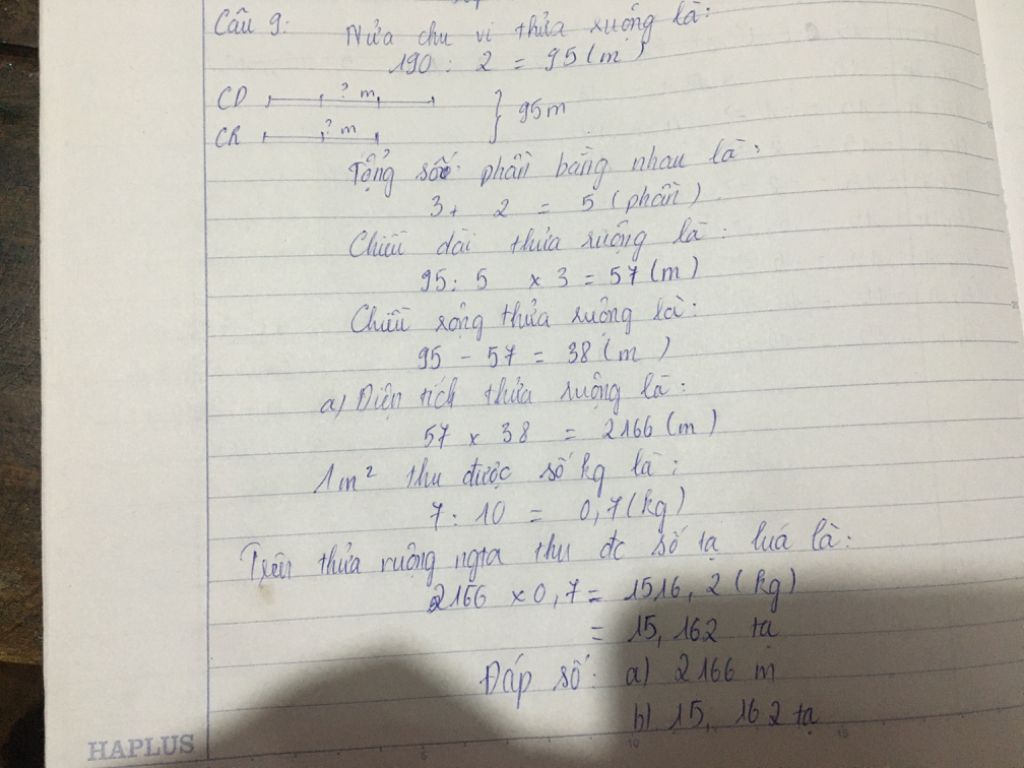 Câu 9: Nửa chu vi thửa ruộng là:
190 : 2 = 95 (m)
CD ? m
CR ? m } 95m
Tổng số phần bằng nhau là:
3 + 2 = 5 (phần)
Chiều dài thửa ruộng là:
95 : 5 x 3 = 57 (m)
Chiều rộng thửa ruộng là:
95 - 57 = 38 (m)
a) Diện tích thửa ruộng là:
57 x 38 = 2166 (m)
1m² thu được số kg là:
7 : 10 = 0,7 (kg)
Trên thửa ruộng ngta thu đc số tạ luá là:
2166 x 0,7 = 1516,2 (kg)
= 15,162 tạ
Đáp số: a) 2166 m
b) 15,162 tạ
HAPLUS